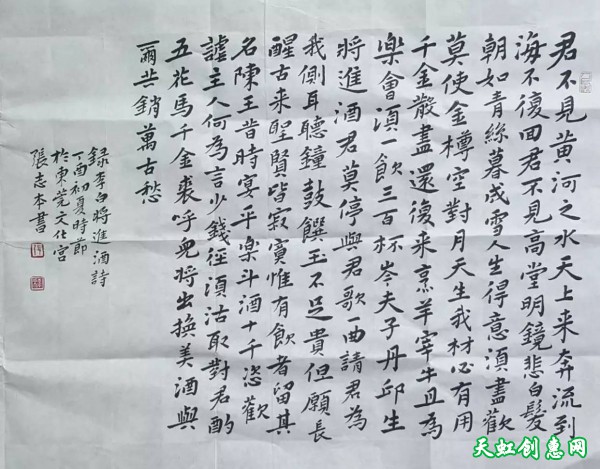 君不見黃河之水天上来奔流到
海不復回君不見高堂明鏡悲白髮
朝如青絲暮成雪人生得意湏盡歡
莫使金樽空對月天生我材必有用
千金散盡還復来烹羊宰牛且為
樂會湏一飲三百杯岑夫子丹邱生
將進酒君莫停與君歌一曲請君為
我側耳聽鐘鼓饌玉不足貴但願長
醒古来聖賢皆寂寞惟有飲者留其
名陳王昔時宴平樂斗酒十千恣歡
謔主人何為言少錢徑湏沽取對君酌
五花馬千金裘呼兒將出換美酒與
爾共銷萬古愁
錄李白將進酒詩
丁酉初夏時節
於東莞文化宮
張志本書
天虹创意网